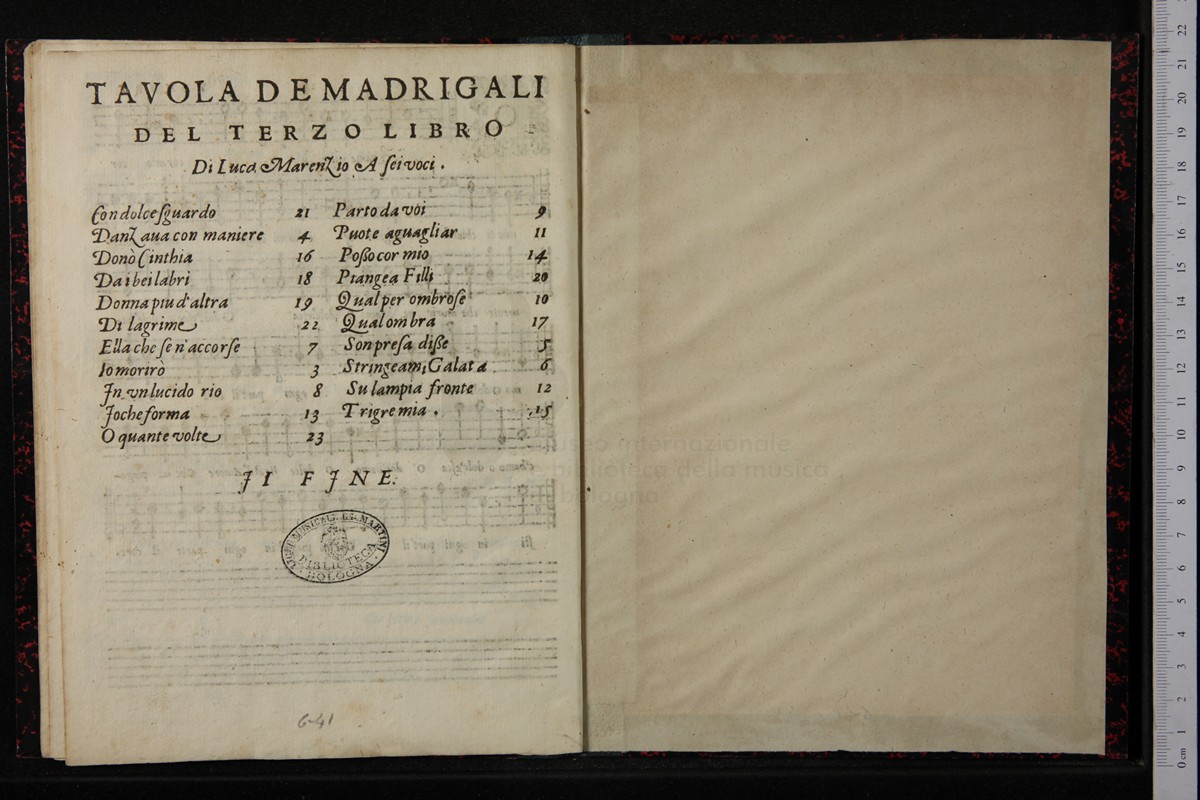 TAVOLA DE MADRIGALI
DEL TERZO LIBRO
Di Luca Marenzio A sei voci.
Con dolce sguardo 21
Danzaua con maniere 4
Donò Cinthia 16
Da i bei labri 18
Donna piu d'altra 19
Di lagrime 22
Ella che se n'accorse 7
Io morirò 3
In vn lucido rio 8
Io che forma 13
O quante volte 23
Parto da voi 9
Puote aguagliar 11
Posso cor mio 14
Piangea Filli 20
Qual per ombrose 10
Qual ombra 17
Son presa disse 5
Stringeami Galatea 6
Su l'ampia fronte 12
Trigre mia. 15
II FINE.
LICEO MUSICALE G.B. MARTINI
BIBLIOTECA
BOLOGNA
6-41
museo internazionale
biblioteca della musica
bologna
0 cm 1 2 3 4 5 6 7 8 9 10 11 12 13 14 15 16 17 18 19 20 21 22